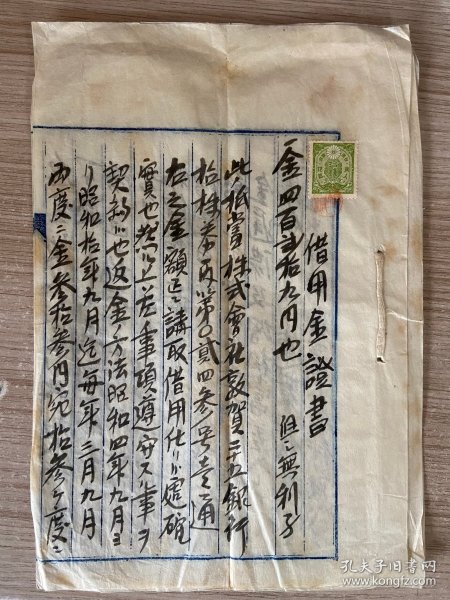 借用金證書
一金四百貳拾九円也
但シ無利子
此抵当株式會社敦賀二十五銀行
拾株券再第〇貳四参号壱通
右之金額正ニ請取借用仕リ候處確
實也然ル上ハ左ノ事項遵守スル事ヲ
契約ス也返金ノ方法昭和四年九月ヨ
リ昭和拾年九月迄毎年三月九月
両度ニ金参拾参円宛拾参ヶ度ニ
孔夫子旧书网
book.kongfz.com